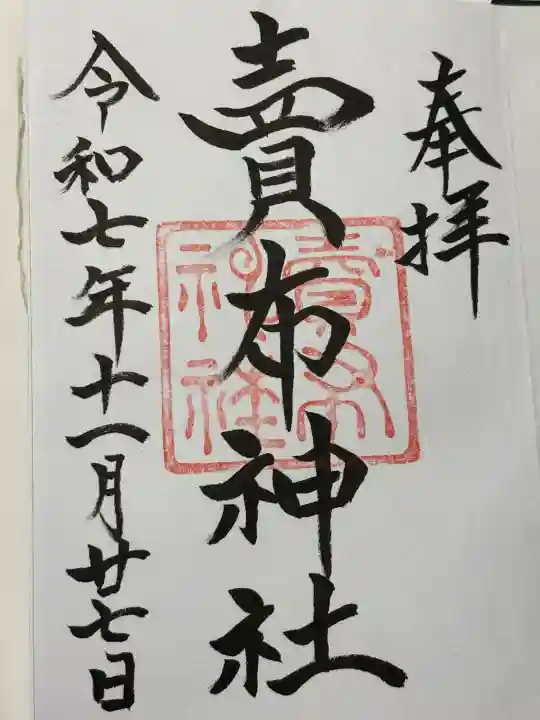 奉拝
賣布神社
賣布神社
令和七年十一月廿七日